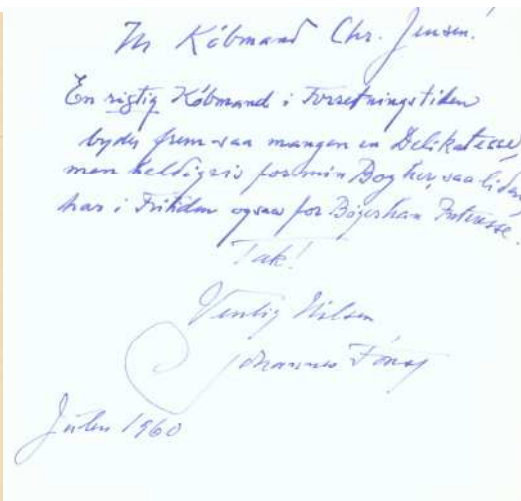 Hr Købmand Chr. Jensen!
En rigtig Købmand i Forretningstiden
byder frem saa mangen en Delikatesse,
men heldigvis for min Bog her, saa liden,
har i Fritiden ogsaa for Bøger han Interesse.
Tak!
Venlig Hilsen
Johannes
Julen 1960